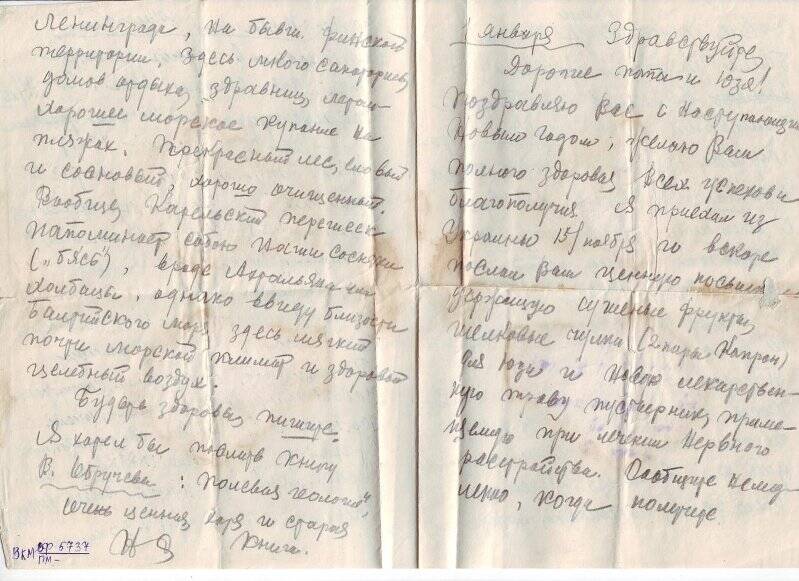 1 января Здравствуйте,
Дорогие тетя и Юзя!
Поздравляю Вас с наступающим
Новым годом, желаю Вам
полного здоровья всех успехов и
благополучия. Я приехал из
Украины 15/ ноября и вскоре
послал Вам ценную посылку
сушеные фрукты,
шелковые чулки (2 пары Капрон)
для Юзи и новою лекарствен-
ную траву пустырник, приме-
няемую при лечении нервного
расстройства. Сообщите немед-
ленно, когда получите.
Ленинграда, на бывш. финской
территории, здесь много санаториев
домов отдыха, здравниц, летом
хорошее морское купание на
пляжах. Прекрасный лес, еловый
и сосновый, хорошо очищенный.
Вообще, Карельский перешеек
напоминает собою наши сосняки
вроде
однако ввиду близости
Балтийского моря, здесь мягкий
почти морской климат и здоровый
целебный воздух.
Будьте здоровы, пишите.
Я хотел бы получить книгу
В. Обручева: "Полевая геология",
очень ценная хотя и старая
книга.
ВКМ ОФ 5737
ПМ-